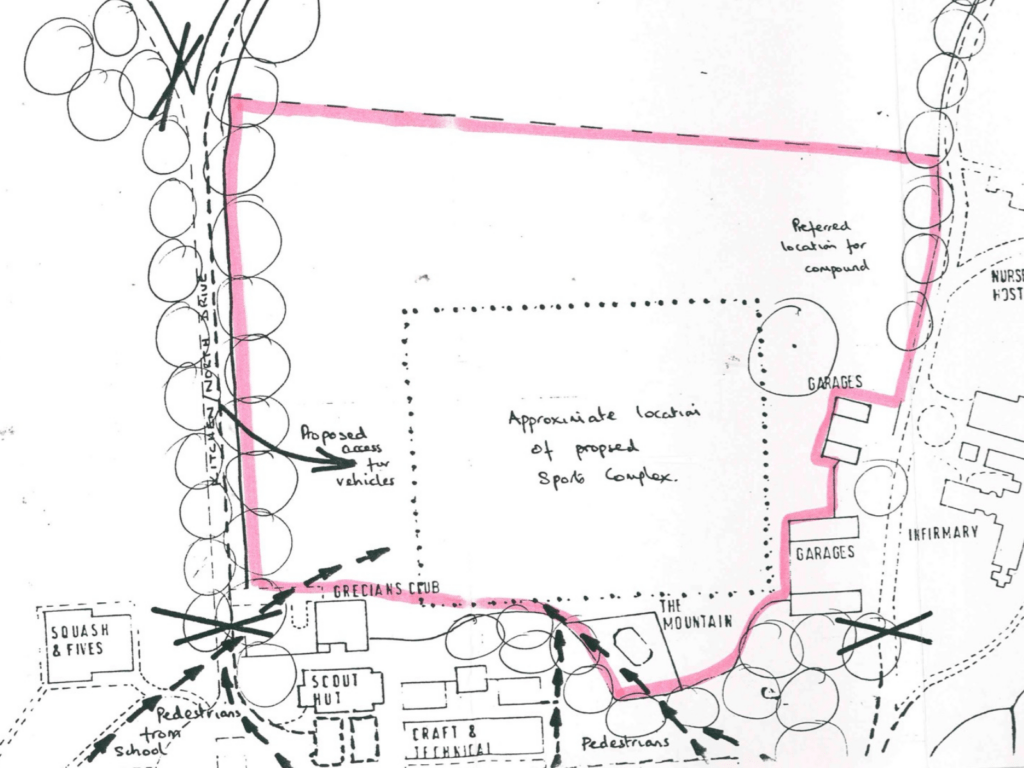 Preferred
location for
compound
NURSE
HOST
KITCHEN/NORTH DRIVE
GARAGES
Approximate location
of proposed
Sports Complex.
Proposed
access
for
vehicles
INFIRMARY
GARAGES
GRECIANS CLUB
THE
MOUNTAIN
SQUASH
& FIVES
SCOUT
HUT
Pedestrians
from
School
CRAFT &
TECHNICAL
Pedestrians